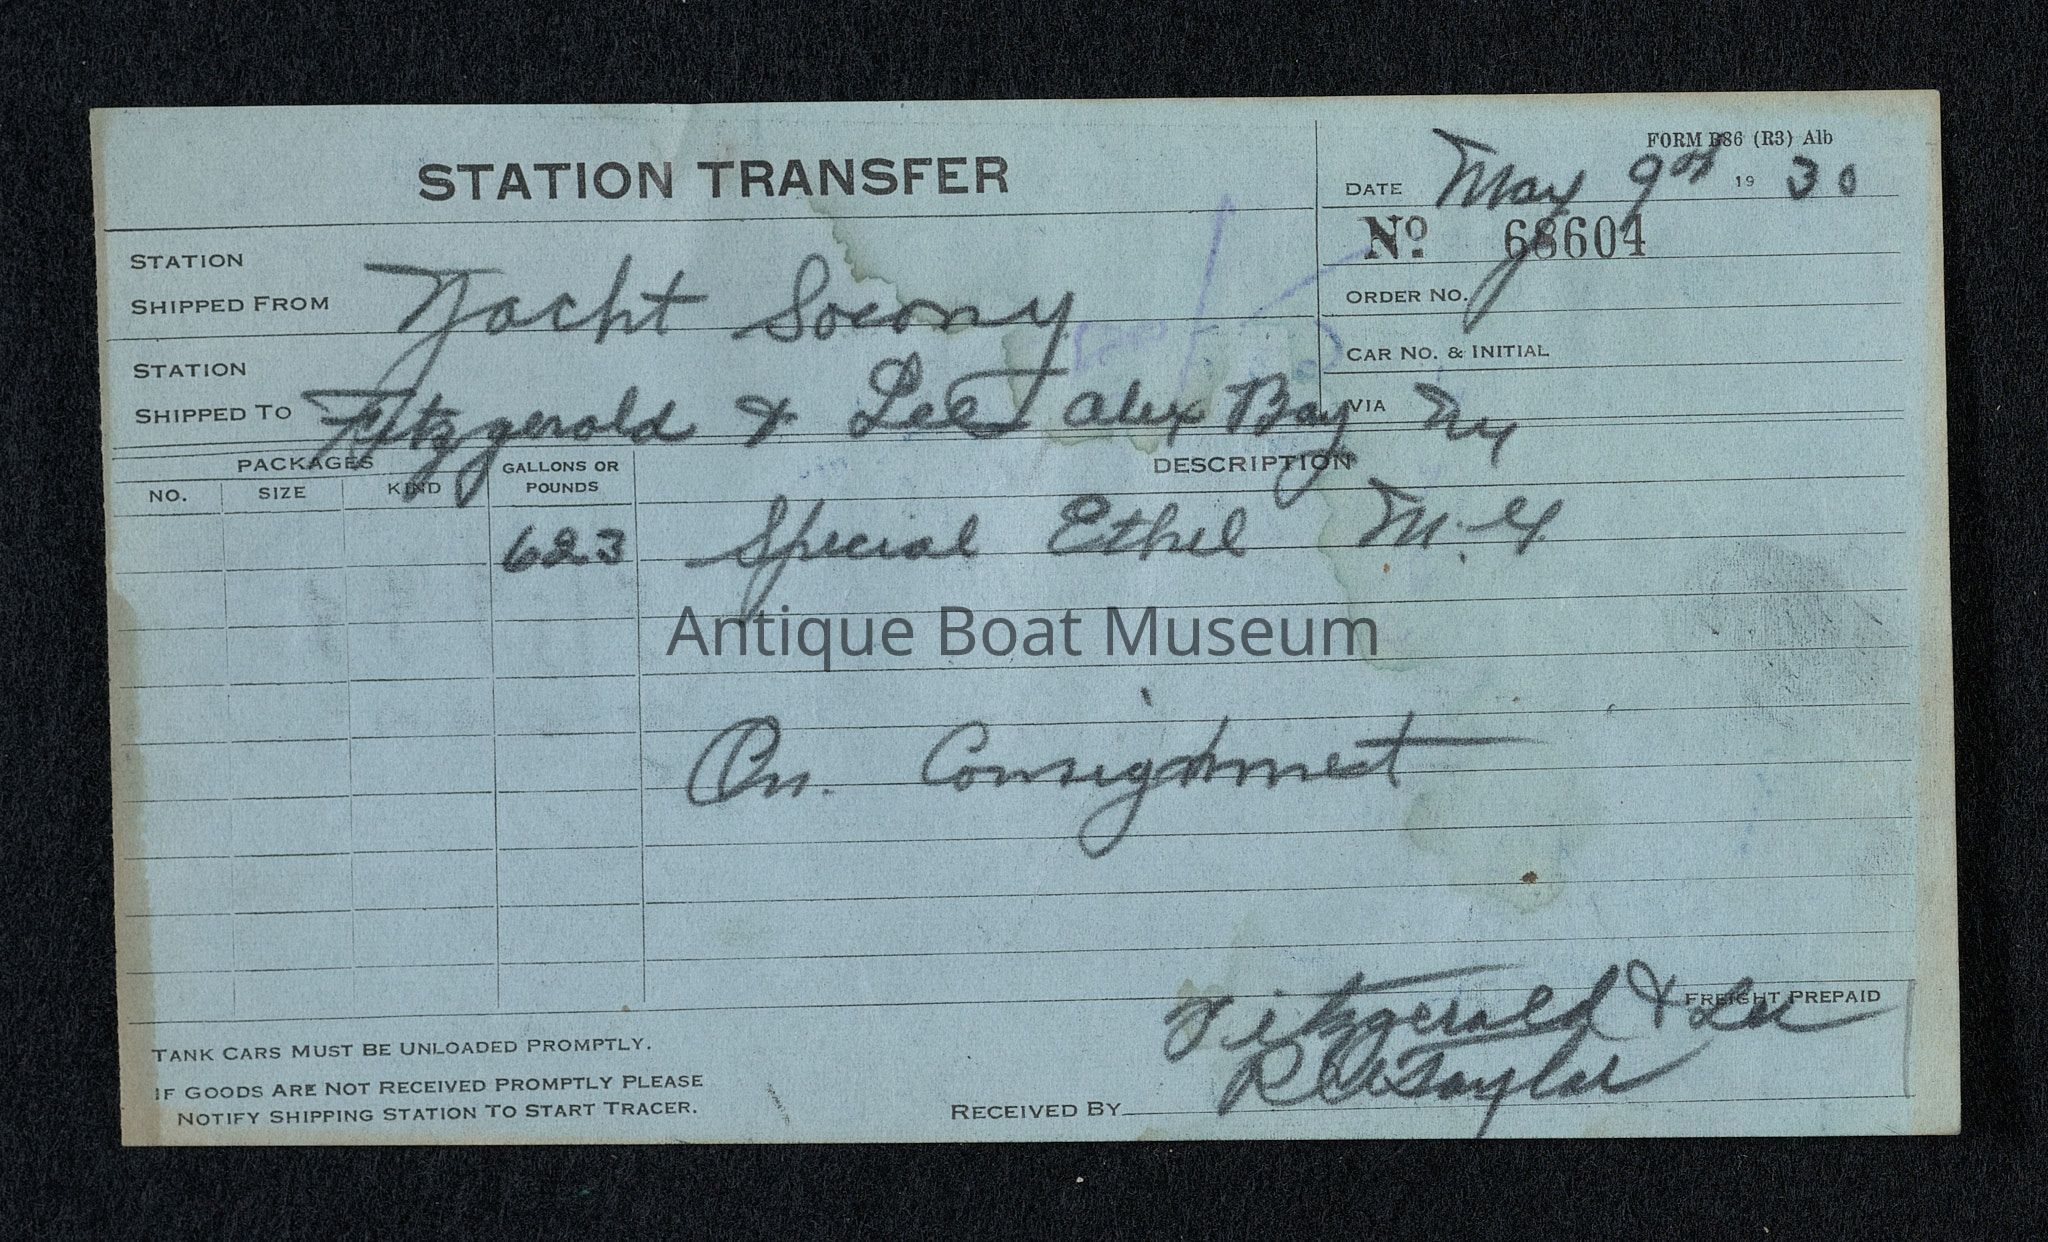 FORM B86 (R3) Alb
STATION TRANSFER
DATE May 9th 19 30
No. 68604
STATION
SHIPPED FROM Yacht Socony
ORDER NO.
STATION
CAR NO. & INITIAL
SHIPPED TO Fitzgerald & Lee Alex Bay NY
VIA
PACKAGES
NO. SIZE KIND GALLONS OR POUNDS DESCRIPTION
623 Special Ethel M.G.
Antique Boat Museum
On Consignment
FREIGHT PREPAID
Fitzgerald & Lee
TANK CARS MUST BE UNLOADED PROMPTLY.
IF GOODS ARE NOT RECEIVED PROMPTLY PLEASE
NOTIFY SHIPPING STATION TO START TRACER.
RECEIVED BY Taylor